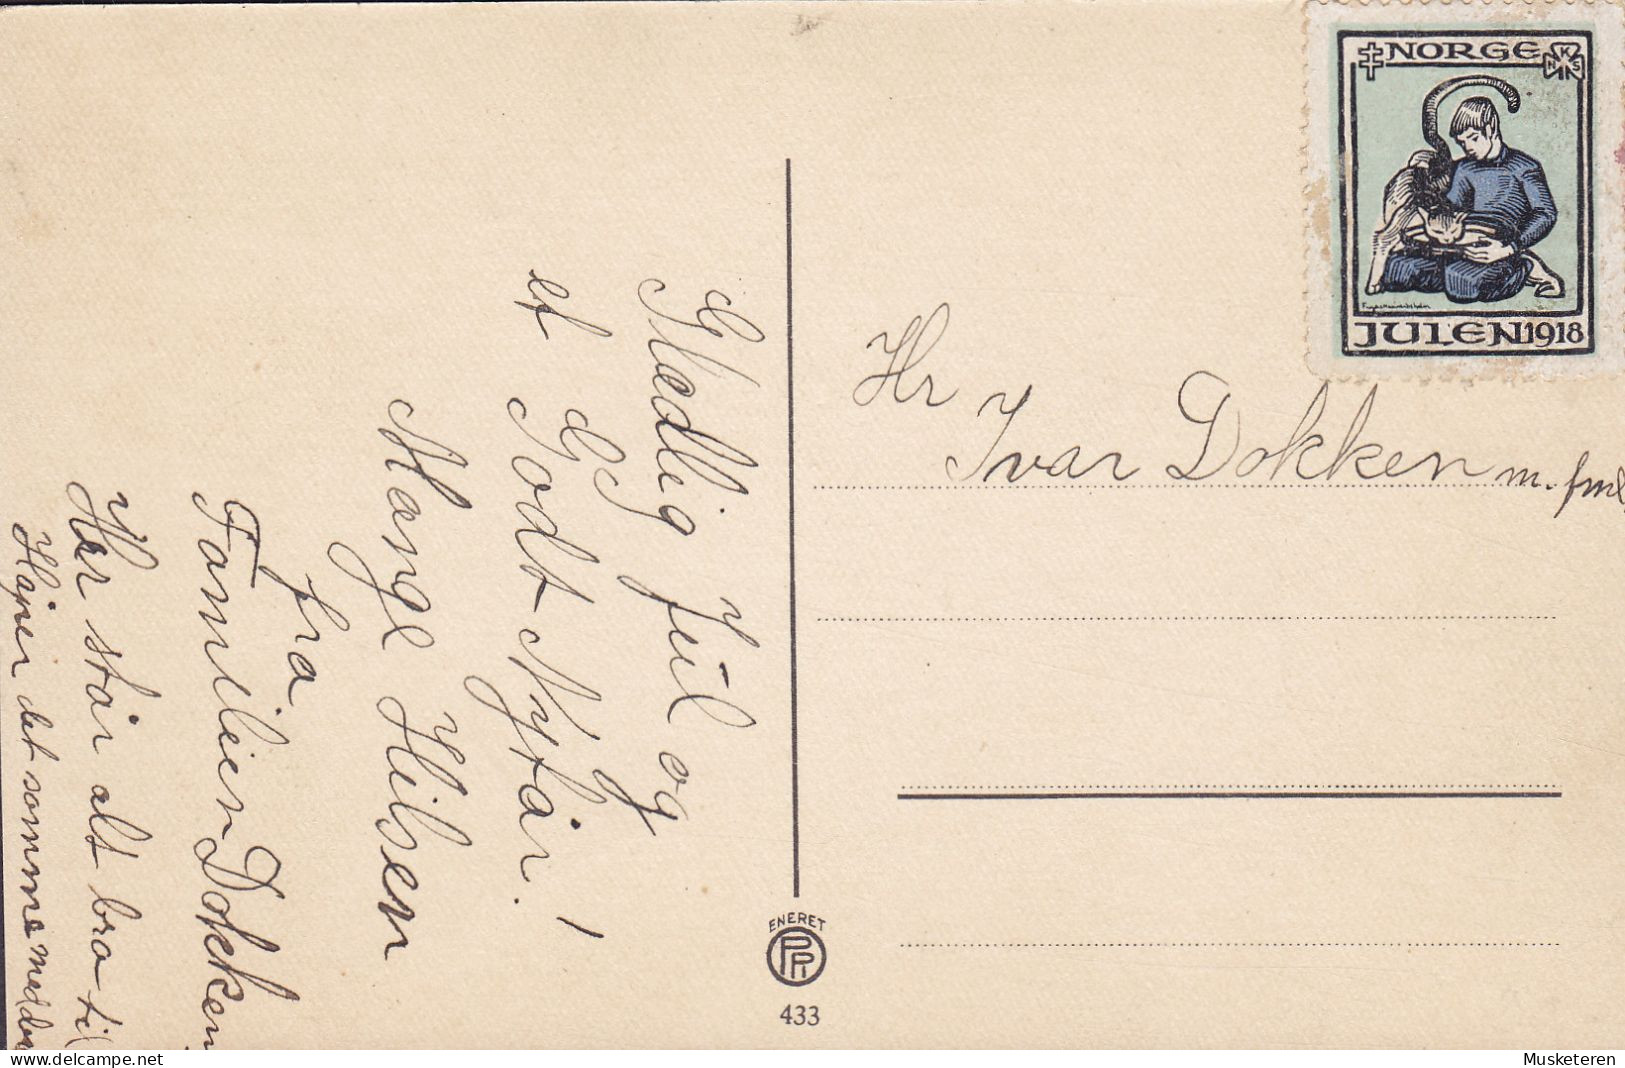 Glædelig Jul og
et Godt Nyttår!
Mange Hilsen
fra
Familien Dokken
Her står alt bra til
Håper det samme med der
NORGE
N K S
JULEN 1918
Hr
Ivar Dokken m. fml
ENERET
433
Musketeren
delcampe.net